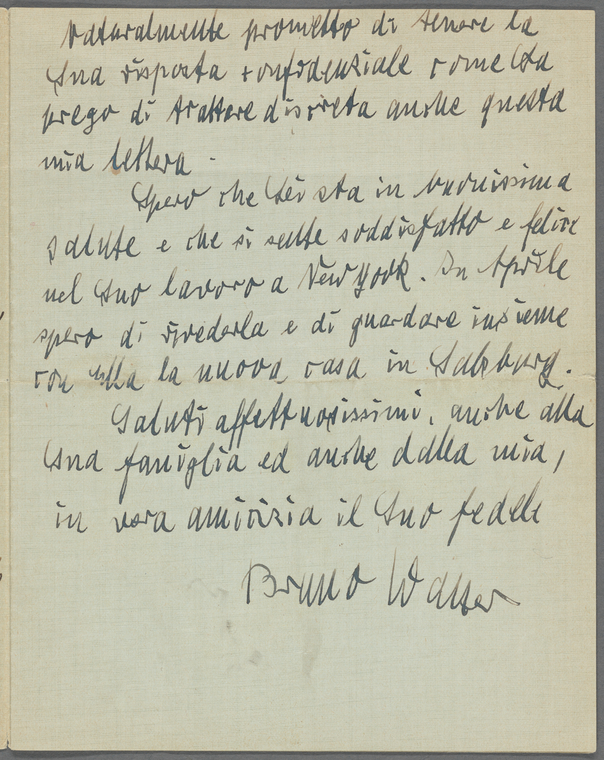 Naturalmente prometto di tenere la
Sua risposta confidenziale come La
prego di trattare discreta anche questa
mia lettera.
Spero che Lei sta in buonissima
salute e che si sente soddisfatto e felice
nel Suo lavoro a New York. In Aprile
spero di rivederla e di guardare insieme
con Ella la nuova casa in Salzburg.
Saluti affettuosissimi, anche alla
Sua famiglia ed anche dalla mia,
in vera amicizia il Suo fedele
Bruno Walter